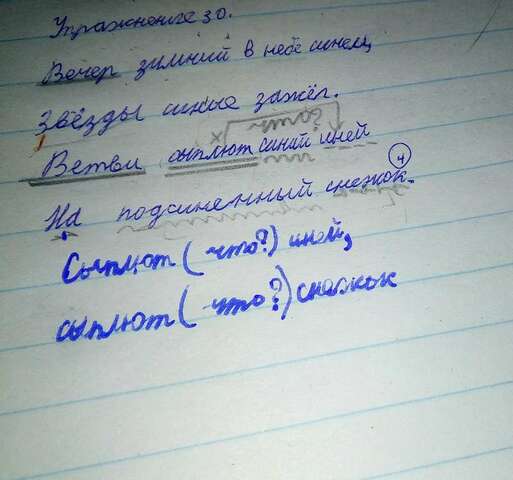 Упражнение 30.
Вечер зимний в небе синем
Звёзды синие зажёг.
Ветви сыплют синий иней
4
На подсиненный снежок.
Сыплют (что?) иней,
сыплют (что?) снежок